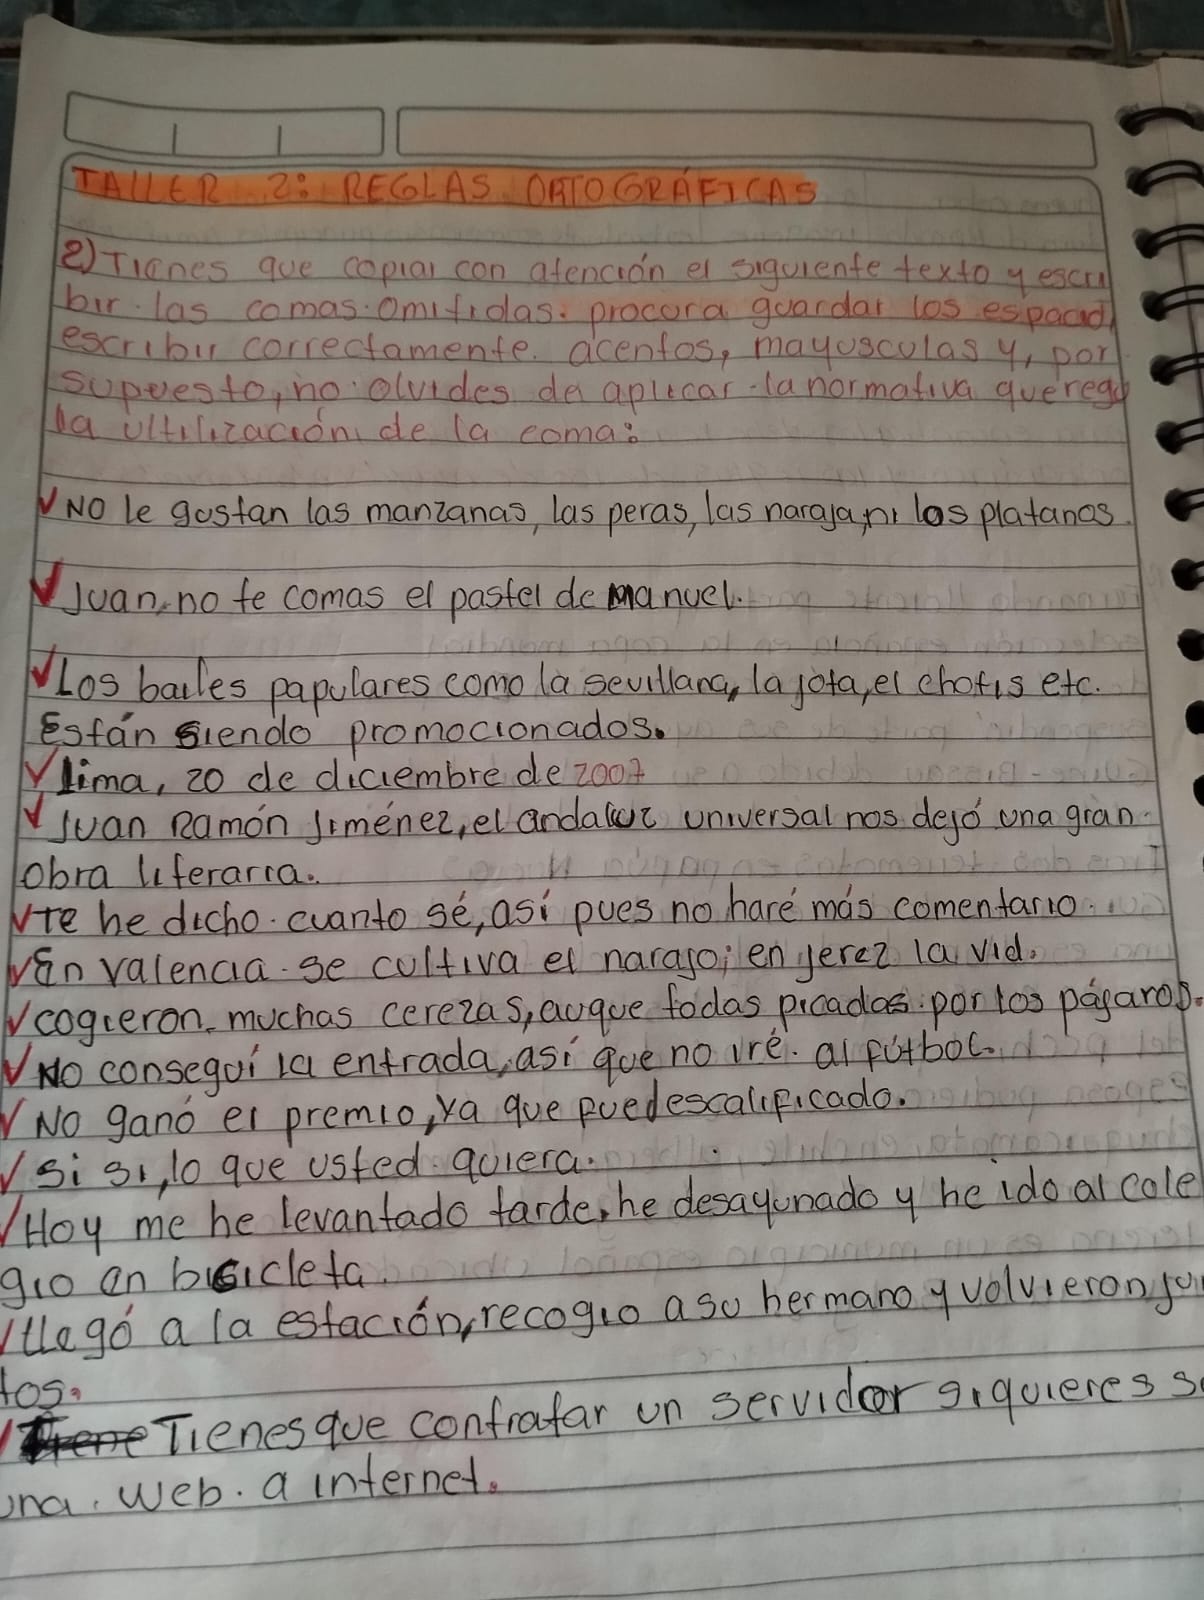 TALLER 2: REGLAS ORTOGRÁFICAS
2) Tienes que copiar con atención el siguiente texto y escri
bir las comas omitidas. procura guardar los espacio
escribir correctamente. acentos, mayusculas y, por
supuesto, no olvides de aplicar la normativa que rega
la ultilización de la coma:
No le gustan las manzanas, las peras, las naraja, ni los platanos.
Juan, no te comas el pastel de Manuel.
Los bailes papulares como la sevillana, la jota, el chotis etc.
Están siendo promocionados.
lima, 20 de diciembre de 2007
Juan Ramón Jiménez, el andaluz universal nos dejó una gran
obra literaria.
Te he dicho cuanto sé, así pues no haré más comentario.
En valencia se cultiva el narajo; en jerez la vid.
cogieron muchas cerezas, auque todas picadas por los pájaros.
No conseguí la entrada, así que no iré al fútbol.
No ganó el premio, ya que fue descalificado.
si si, lo que usted quiera.
Hoy me he levantado tarde, he desayunado y he ido al cole
gio en bicicleta.
llegó a la estación, recogio a su hermano y volvieron jun
tos.
Tienes que contratar un servidor si quieres s
una web a internet.